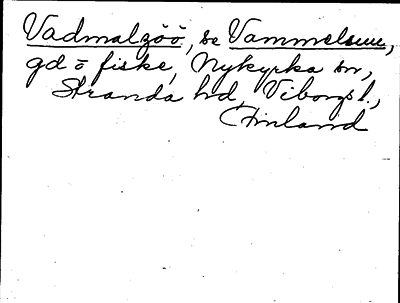 Vadmalzöö, se Vammelsuu,
gd o fiske, Nykyrka sn,
Stranda hd, Viborgs l.,
Finland